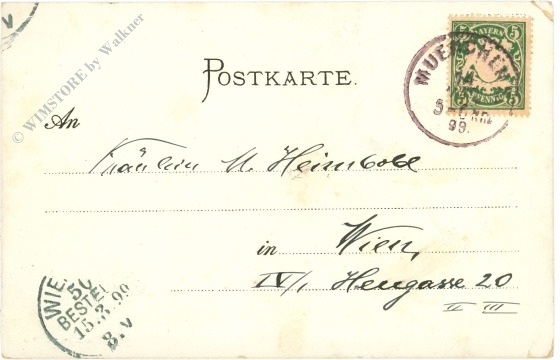 V
© WIMSTORE by Walkner
BAYERN
5 5
5 PFENNIG 5
MUENCHEN
99.
POSTKARTE.
An
Fräulein M. Heimbold
in Wien,
IV/1 Heugasse 20
II III
WIE
50
BESTEL
15.3.99
8.V